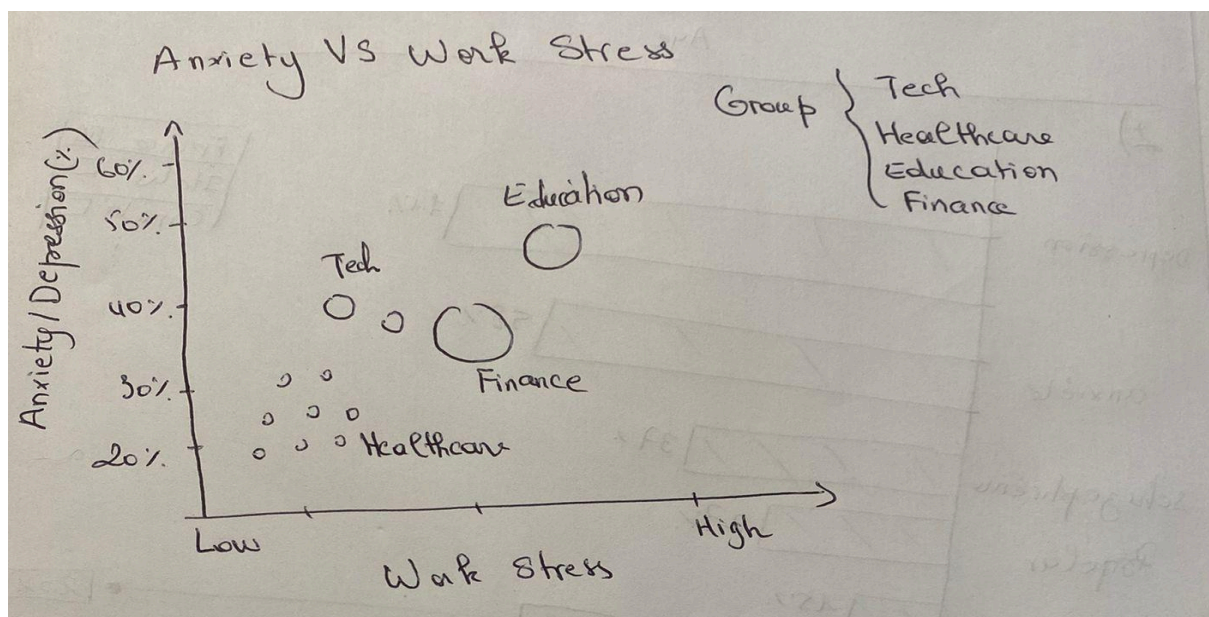 Anxiety VS Work Stress
Group
Tech
Healthcare
Education
Finance
Anxiety/Depression(%)
60%.
50%.
40%.
30%.
20%.
Education
Tech
Finance
Healthcare
Low
High
Work Stress